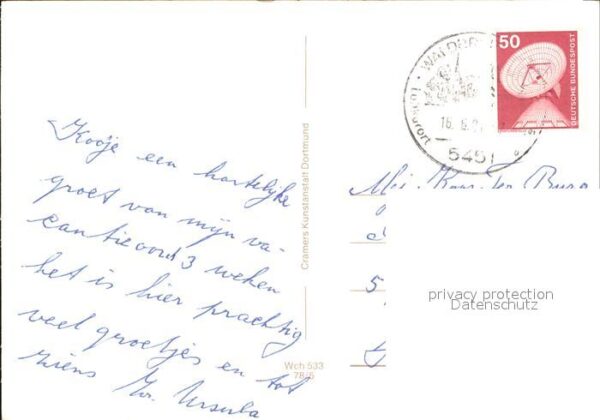 Kooje een hartelijke
groet van mijn va-
cantieoord 3 weken
het is hier prachtig
veel groetjes en tot
ziens Zr. Ursula
Cramers Kunstanstalt Dortmund
Wch 533
78/5
50
DEUTSCHE BUNDESPOST
WALDBR
Luftkurort
16. 8.
5451
5
privacy protection
Datenschutz